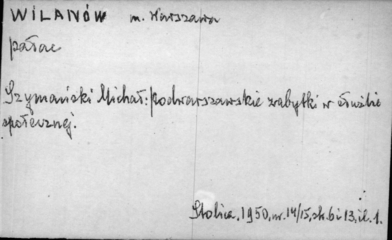 WILANÓW m. Warszawa
pałac
Szymański Michał: podwarszawskie zabytki w służbie
społecznej.
Stolica, 1950, nr. 14/15, sk. 6 i 13, il. 1.